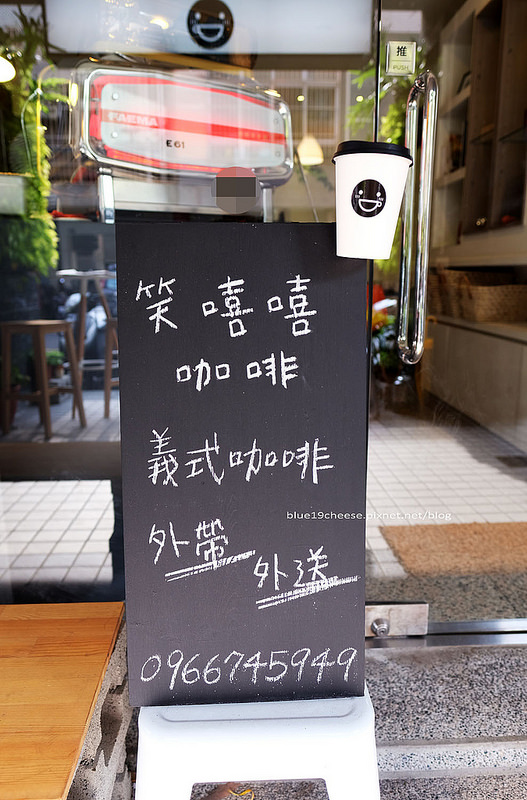 推
PUSH
FAEMA
E61
笑嘻嘻
咖啡
義式咖啡
外帶
外送
0966745949
blue19cheese.pixnet.net/blog